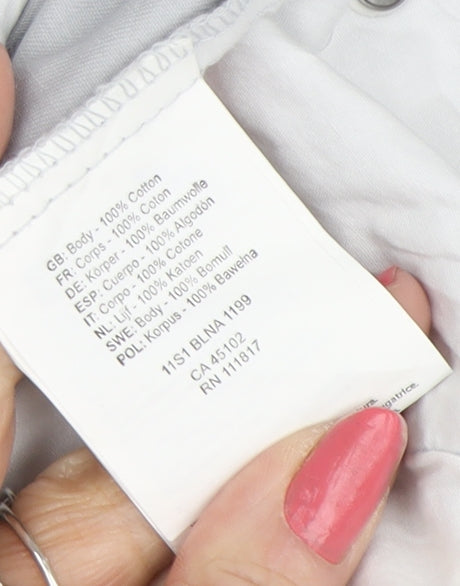 GB: Body - 100% Cotton
FR: Corps - 100% Coton
DE: Körper - 100% Baumwolle
ESP: Cuerpo - 100% Algodón
IT: Corpo - 100% Cotone
NL: Lijf - 100% Katoen
SWE: Body - 100% Bomull
POL: Korpus - 100% Bawełna
11S1 BLNA 1199
CA 45102
RN 111817